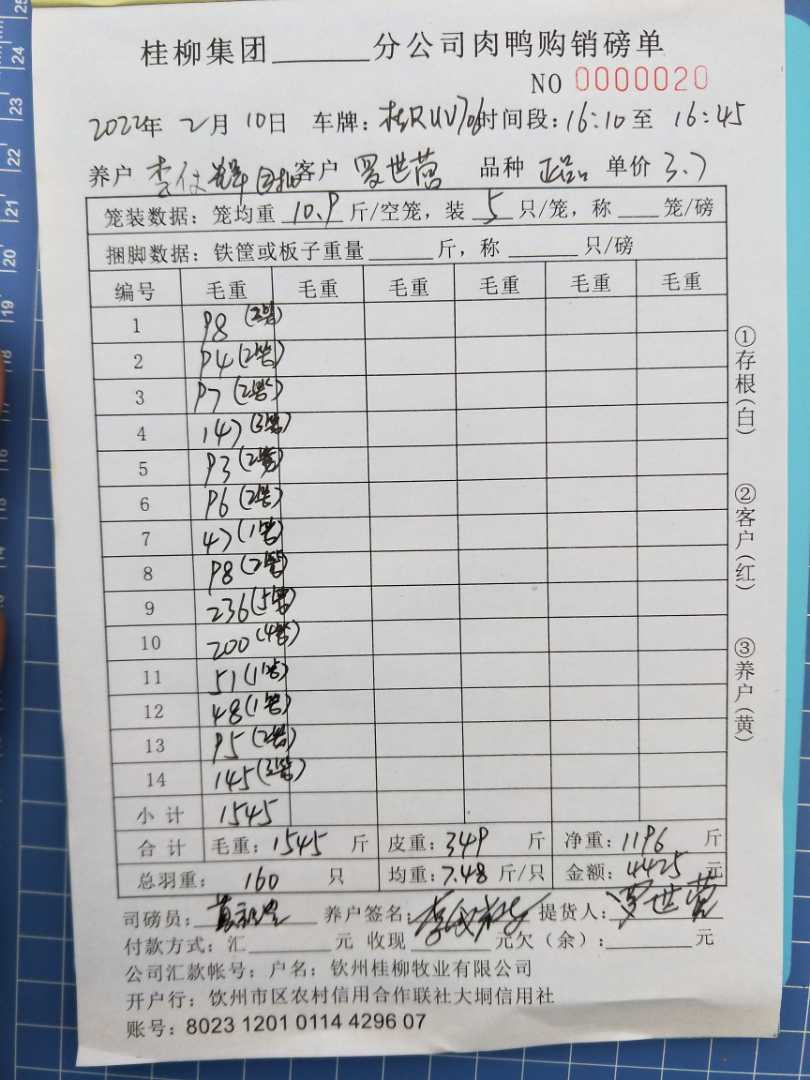 桂柳集团______分公司肉鸭购销磅单
NO 0000020
2022年 2月 10日 车牌：桂RUV706 时间段：16:10 至 16:45
养户 李 客户 罗世营 品种 正品 单价 3.7
笼装数据：笼均重 10.9 斤/空笼，装 5 只/笼，称 ___ 笼/磅
捆脚数据：铁筐或板子重量 ______ 斤，称 ______ 只/磅
编号 毛重 毛重 毛重 毛重 毛重 毛重
1 98 (2笼)
2 94 (2笼)
3 97 (2笼)
4 147 (3笼)
5 93 (2笼)
6 96 (2笼)
7 47 (1笼)
8 98 (2笼)
9 236 (5笼)
10 200 (4笼)
11 51 (1笼)
12 48 (1笼)
13 95 (2笼)
14 145 (3笼)
小计 1545
合计 毛重：1545 斤 皮重：349 斤 净重：1196 斤
总羽重： 160 只 均重：7.48 斤/只 金额：4425 元
司磅员： 养户签名： 提货人：罗世营
付款方式：汇______元 收现______元欠（余）：______元
公司汇款帐号：户名：钦州桂柳牧业有限公司
开户行：钦州市区农村信用合作联社大垌信用社
账号：8023 1201 0114 4296 07
①存根(白)
②客户(红)
③养户(黄)
25
24
23
22
21
20
19
18